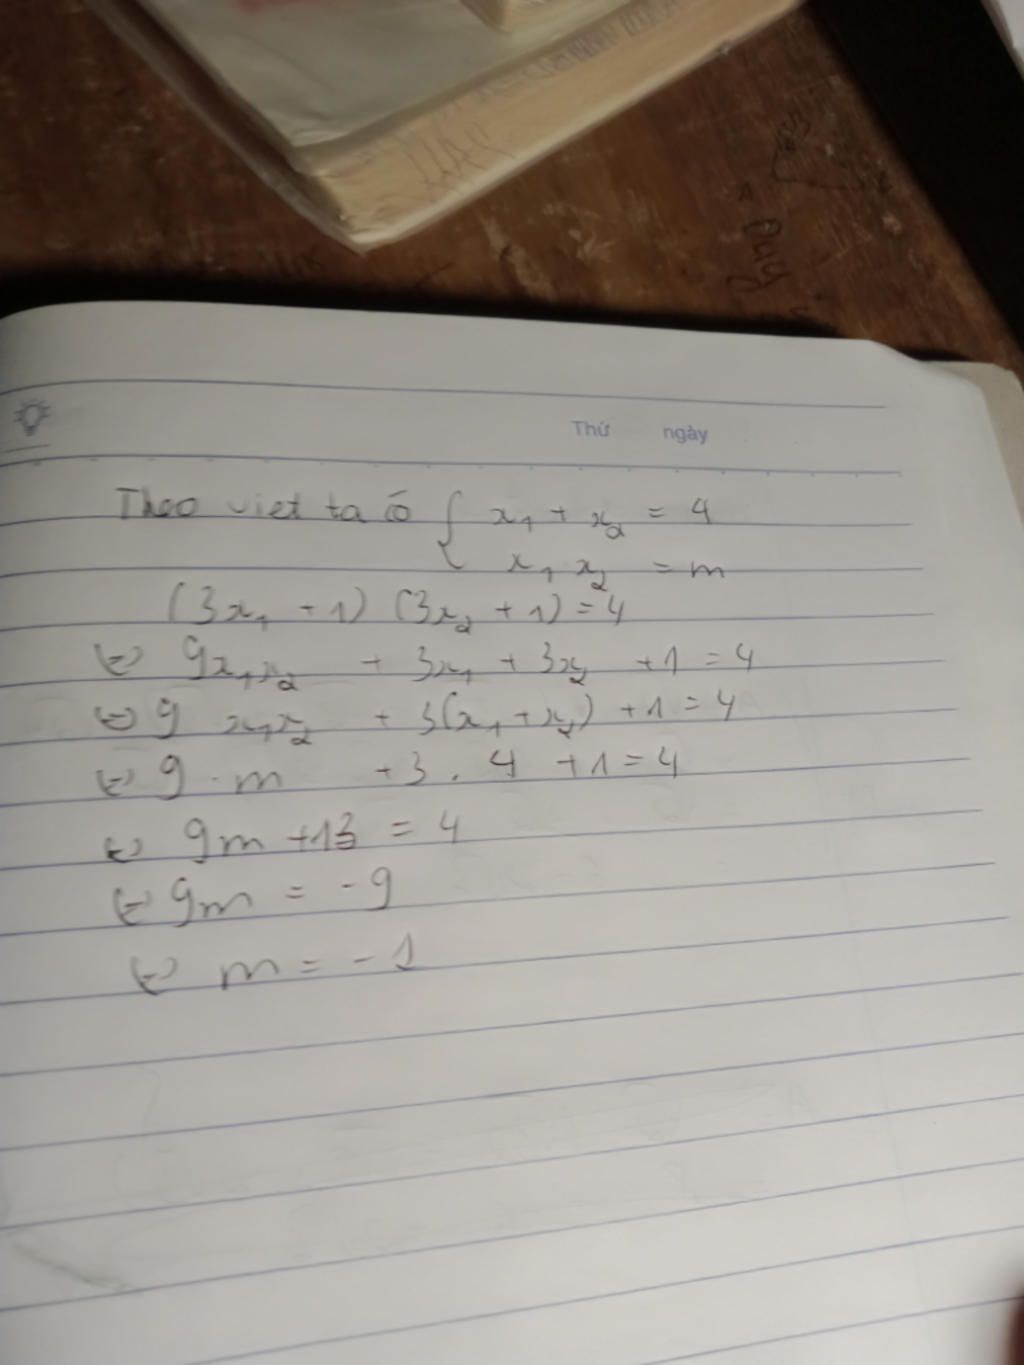 Thứ ngày
Theo viet ta có { x₁ + x₂ = 4
x₁ x₂ = m
(3x₁ + 1) (3x₂ + 1) = 4
⇔ 9x₁x₂ + 3x₁ + 3x₂ + 1 = 4
⇔ 9 x₁x₂ + 3(x₁ + x₂) + 1 = 4
⇔ 9 . m + 3 . 4 + 1 = 4
⇔ 9m + 13 = 4
⇔ 9m = -9
⇔ m = -1